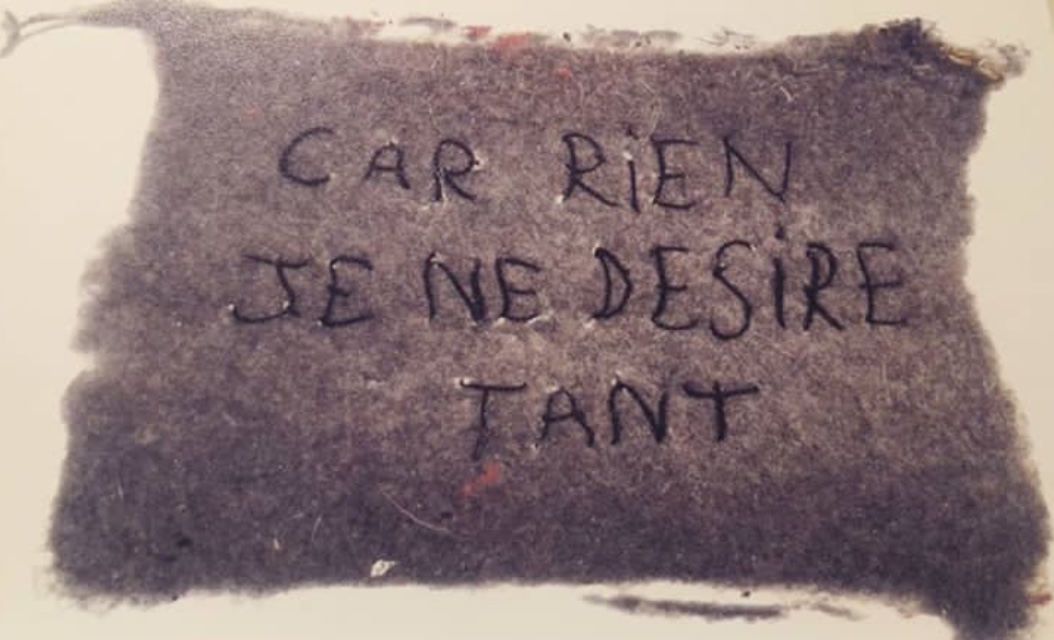 CAR RiEN
JE NE DESiRE
TANT